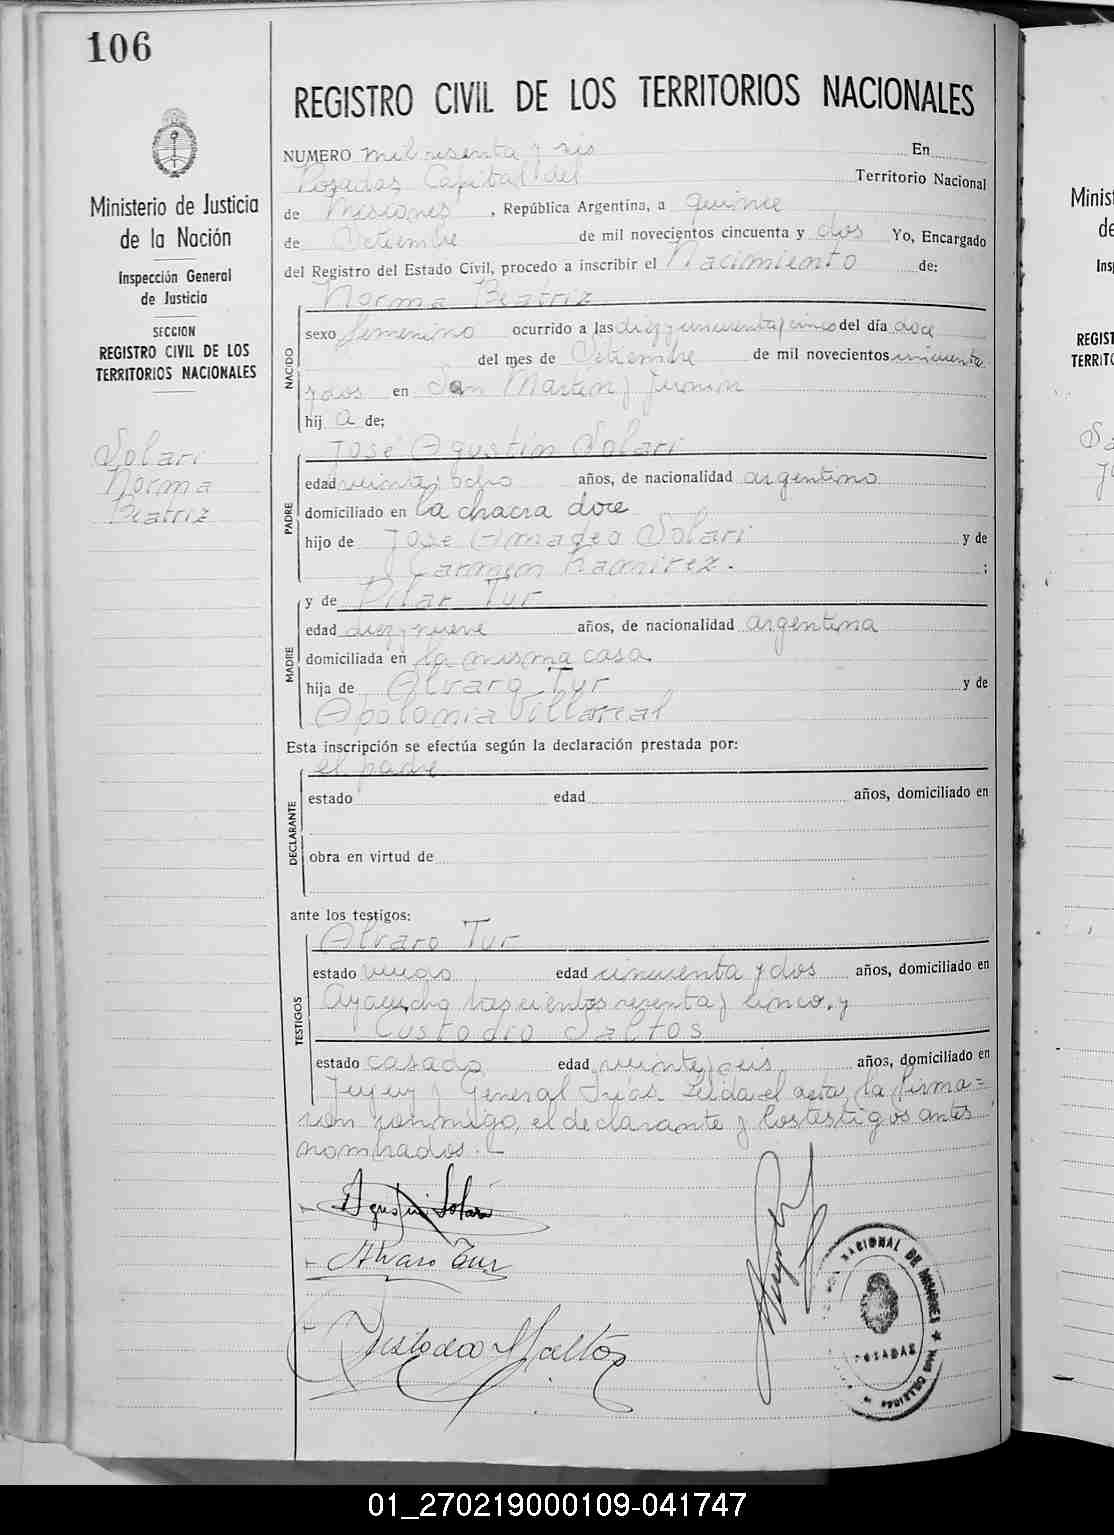 106
REGISTRO CIVIL DE LOS TERRITORIOS NACIONALES
Ministerio de Justicia
de la Nación
Inspección General
de Justicia
SECCION
REGISTRO CIVIL DE LOS
TERRITORIOS NACIONALES
Solari
Norma
Beatriz
NUMERO mil sesenta y seis En
Posadas Capital del Territorio Nacional
de Misiones, República Argentina, a quince
de Setiembre de mil novecientos cincuenta y dos Yo, Encargado
del Registro del Estado Civil, procedo a inscribir el Nacimiento de:
Norma Beatriz
NACIDO
sexo femenino ocurrido a las diez y cincuenta y cinco del día doce
del mes de Setiembre de mil novecientos cincuenta
y dos en San Martin y Junin
hij a de;
José Agustin Solari
PADRE
edad veinte y ocho años, de nacionalidad argentino
domiciliado en la chacra doce
hijo de José Amadeo Solari y de
Carmen Ramirez. ;
y de Pilar Tur
MADRE
edad diez y nueve años, de nacionalidad argentina
domiciliada en la misma casa
hija de Alvaro Tur y de
Apolonia Villareal
Esta inscripción se efectúa según la declaración prestada por:
el padre
DECLARANTE
estado edad años, domiciliado en
obra en virtud de
ante los testigos:
Alvaro Tur
TESTIGOS
estado viudo edad cincuenta y dos años, domiciliado en
Ayacucho sesenta y cinco, y
Custodio Saltos
estado casado edad veinte y seis años, domiciliado en
Jujuy y General Frias Leida el acta, la firma=
ron conmigo, el declarante y los testigos antes
nombrados.
Agustin Solari
Alvaro Tur
Custodio Saltos
NACIONAL DE MISIONES
POSADAS
Minist
de
Ins
REGIST
TERRITO
01_270219000109-041747